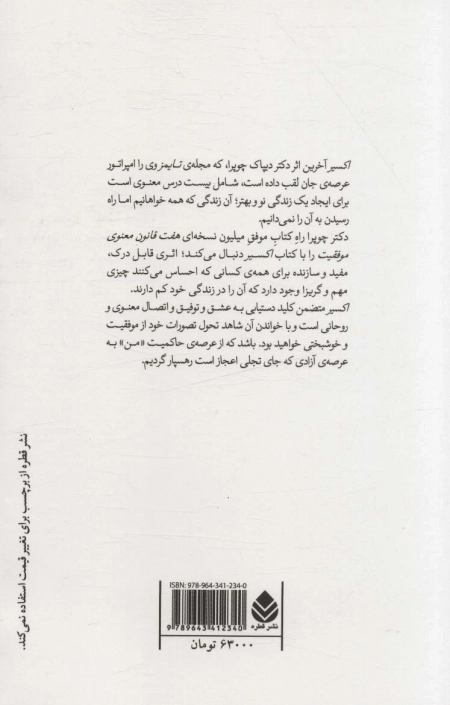 اکسیر آخرین اثر دکتر دیپاک چوپرا، که مجله‌ی تایمز وی را امپراتور
عرصه‌ی جان لقب داده است، شامل بیست درس معنوی است
برای ایجاد یک زندگی نو و بهتر؛ آن زندگی که همه خواهانیم اما راه
رسیدن به آن را نمی‌دانیم.
دکتر چوپرا راه کتابِ موفقِ میلیون نسخه‌ای هفت قانون معنوی
موفقیت را با کتاب اکسیر دنبال می‌کند؛ اثری قابل درک،
مفید و سازنده برای همه‌ی کسانی که احساس می‌کنند چیزی
مهم و گریزا وجود دارد که آن را در زندگی خود کم دارند.
اکسیر متضمن کلید دستیابی به عشق و توفیق و اتصال معنوی و
روحانی است و با خواندن آن شاهد تحول تصورات خود از موفقیت
و خوشبختی خواهید بود. باشد که از عرصه‌ی حاکمیت «من» به
عرصه‌ی آزادی که جای تجلی اعجاز است رهسپار گردیم.
نشر قطره از برچسب برای تغییر قیمت استفاده نمی‌کند.
ISBN: 978-964-341-234-0
9 789643 412340
نشر قطره
۶۳۰۰۰ تومان